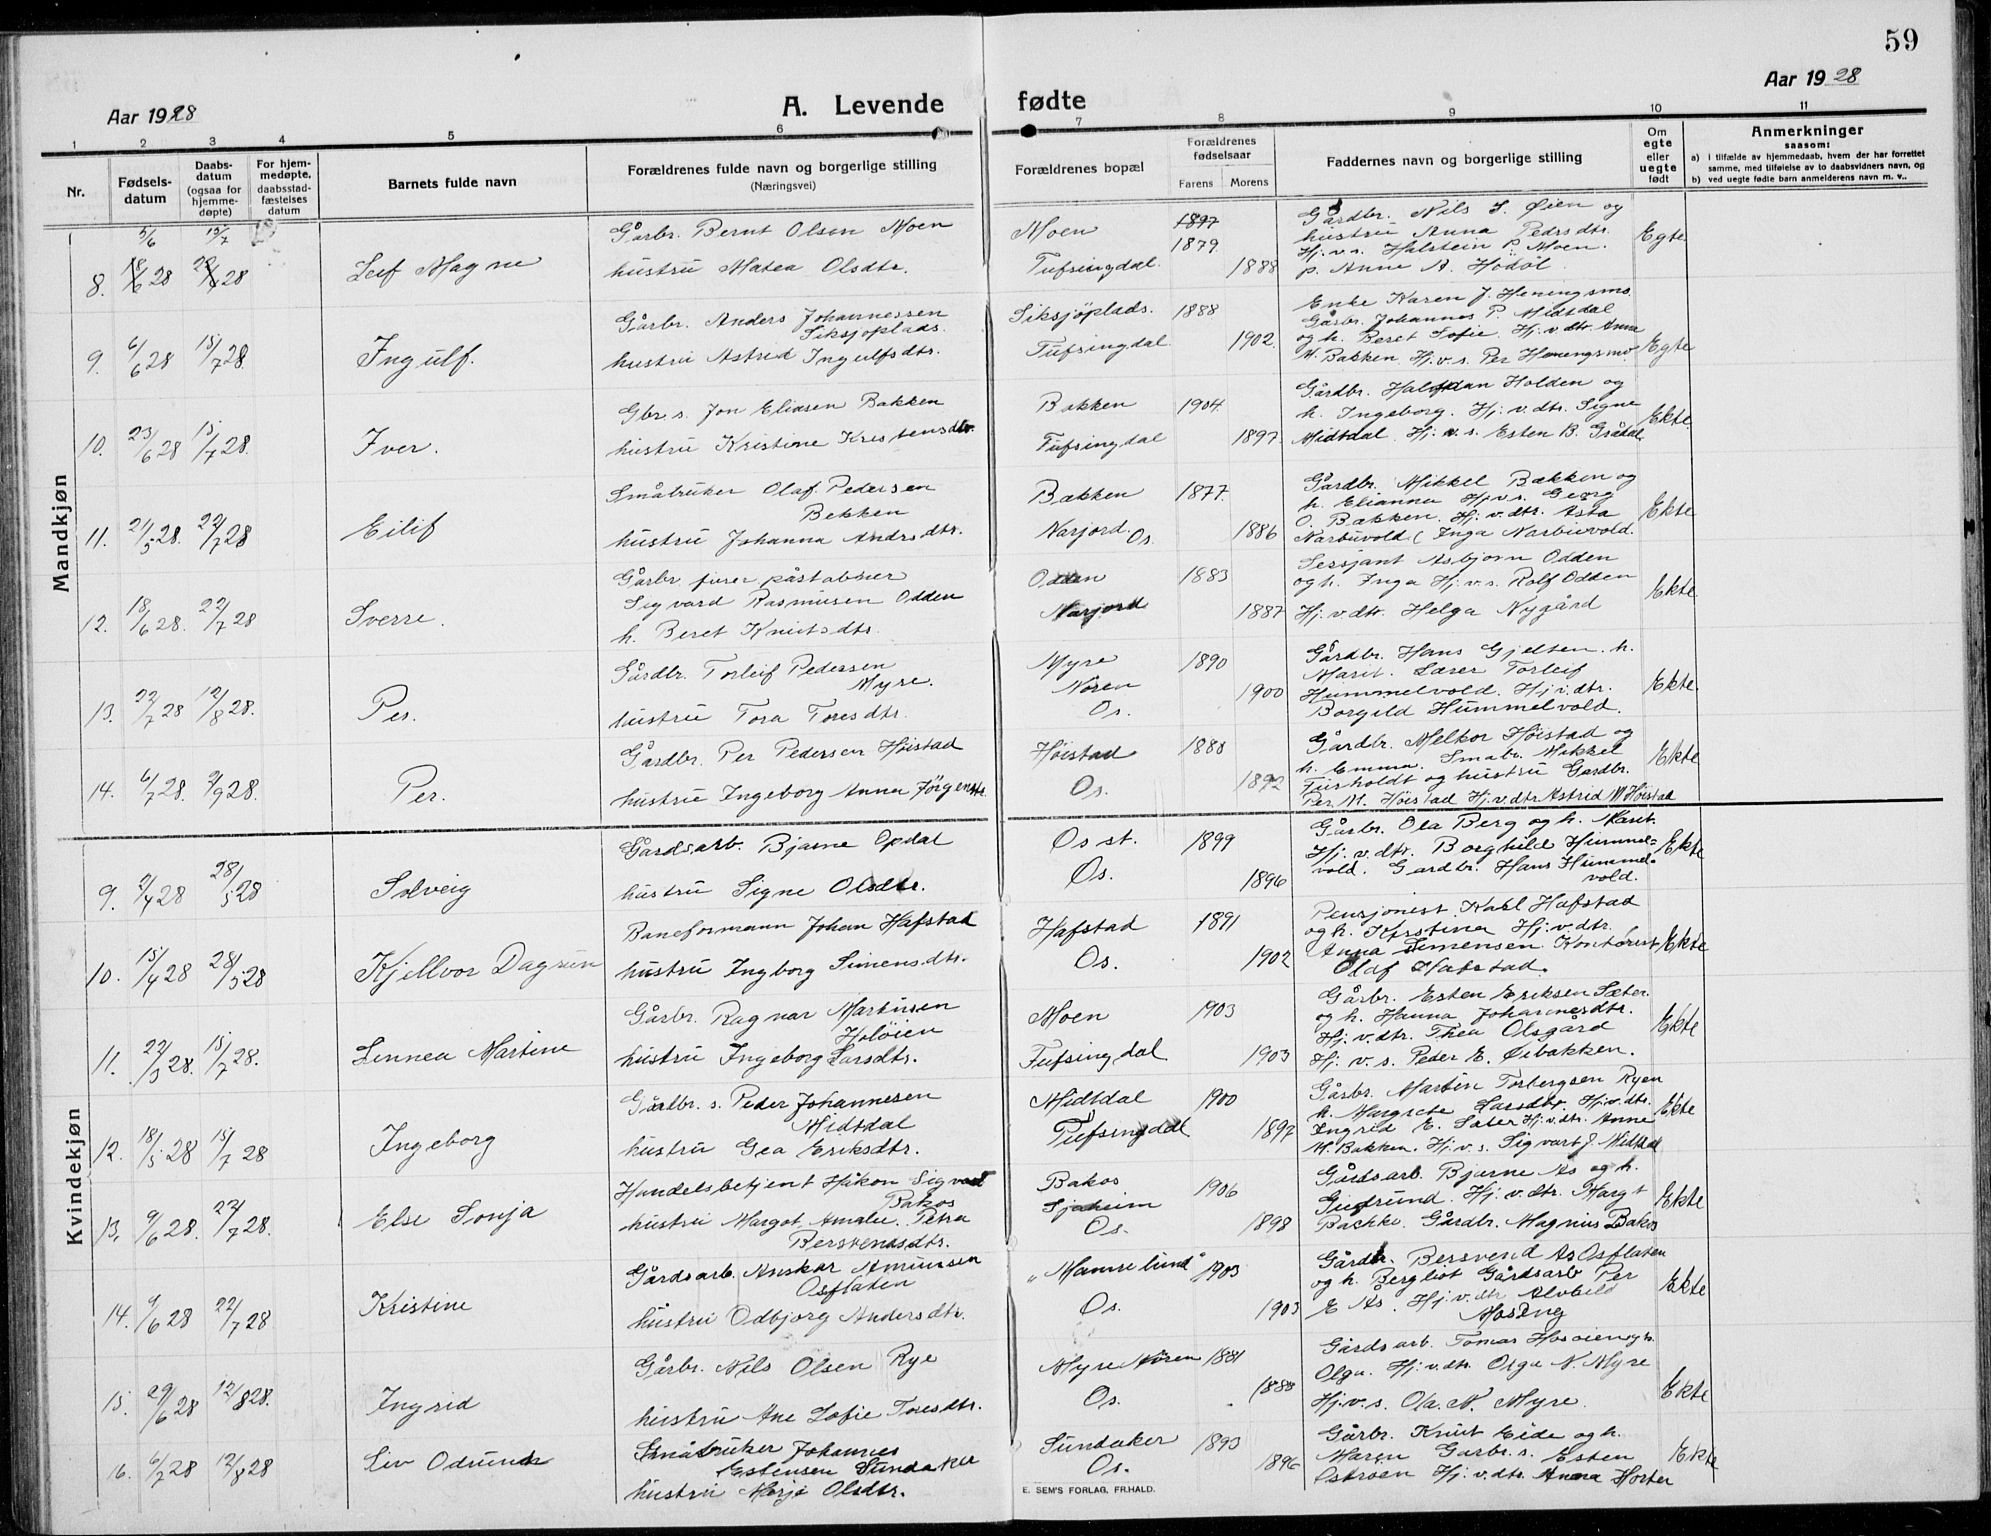 59
Aar 1928
A. Levende fødte
Aar 1928
1 2 3 4 5 6 7 8 9 10 11
Nr.
Fødsels-
datum
Daabs-
datum
(ogsaa for
hjemme-
døpte)
For hjem-
medøpte,
daabsstad-
fæstelses
datum
Barnets fulde navn
Forældrenes fulde navn og borgerlige stilling
(Næringsvei)
Forældrenes bopæl
Forældrenes
fødselsaar
Farens
Morens
Faddernes navn og borgerlige stilling
Om
egte
eller
uegte
født
Anmerkninger
saasom:
a) i tilfælde av hjemmedaab, hvem der har forrettet
samme, med tilføielse av to daabsvidners navn, og
b) ved uegte fødte barn anmelderens navn m. v..
Mandkjøn
5/6 15/7
8. 28 28 Leif Magne
Gårbr. Bernt Olsen Moen
hustru Matea Olsdtr.
Moen 1897
1879
Tufsingdal 1888
Gårdbr. Nils S. Øien og
hustru Anna Pedrsdtr.
Hj.v.s. Halstein P. Moen.
p. Anne A. Hodøl.
Egte
9. 6/6 28 15/7 28. Ingulf.
Gårbr. Anders Johannessen
Siksjøplads.
hustru Astrid Ingulfsdtr.
Siksjøplads. 1888
Tufsingdal 1902.
Enke Karen J. Heningsmo.
Gårbr. Johannes P. Midtdal
og h. Beret Sofie. Hj.v.dtr. Anna
M. Bakken Hj.v.s. Per Heningsmo
Egte
10. 23/6 28 15/7 28. Iver.
Gbr.s. Jon Eliasen Bakken
hustru Kristine Kristensdtr.
Bakken 1904.
Tufsingdal 1897.
Gårdbr. Halfdan Holden og
h. Ingeborg. Hj.v.dtr. Signe
Midtdal. Hj.v.s. Esten B. Grådal
Ekte.
11. 21/5 28. 22/7 28 Eilif
Småbruker Olaf Pedersen
Bekken
hustru Johanna Andrsdtr.
Bækken 1877.
Narjord. Os. 1886
Gårdbr. Mikkel Bækken og
h. Elianna Hj.v.s. Georg
O. Bækken. Hj.v.dtr. Asta
Narbuvold. ( Inga Narbuvold.
Ekte
12. 18/6 28. 22/7 28 Sverre.
Gårbr. furer påstabner
Sigvard Rasmusen Odden
h. Beret Knutsdtr.
Odden 1883
Narjord 1887
Sersjant Asbjørn Odden
og h. Inga Hj.v.s. Rolf Odden
Hj.v.dtr. Helga Nygård
Ekte
13. 22/7 28 12/8 28. Per.
Gårdbr. Torleif Pedersen
Myre.
hustru Tora Toresdtr.
Myre 1890
Nøren 1900
Os.
Gårdbr. Hans Gjelten. h.
Marit. Lærer Torleif
Hummelvold. Hj.v.dtr.
Borgild Hummelvold.
Ekte.
14. 6/7 28. 2/9 28. Per.
Gårdbr. Per Pedersen Høistad
hustru Ingeborg Anna Jørgensdtr.
Høistad 1888
Os. 1892
Gårdbr. Melkor Høistad og
h. Emma. Småbr. Mikkel
og hustru Gårdbr.
Per M. Høistad Hj.v.dtr Astrid M Høistad
Ekte
Kvindekjøn
9. 2/4 28 28/5 28 Solveig
Gårdsarb. Bjarne Opdal
hustru Signe Olsdtr.
Os st. 1899
Os. 1896
Gårbr. Ola Berg og h. Marit.
Hj.v.dtr. Borghilde Hummel-
vold. Gardbr. Hans Hummel-
vold.
Ekte
10. 15/4 28 28/5 28 Kjellvor Dagrun
Baneformann Johan Hafstad
hustru Ingborg Simensdtr.
Hafstad 1891
Os. 1902
Pensjonist Karl Hafstad
og h. Kirstina Hj.v.dtr.
Anna Simensen Kontorist
Olaf Hafstad.
Ekte
11. 22/3 28. 15/7 28. Linnea Martine
Gårbr. Ragnar Martinsen
Holøien
hustru Ingeborg Larsdtr.
Moen 1903
Tufsingdal 1903
Gårbr. Esten Eriksen Sæter.
og h. Hanna Johannesdtr.
Hj.v.dtr. Thea Olsgård
Hj.v.s. Peder E. Øibakken.
Ekte
12. 18/5 28 15/7 28 Ingeborg
Gårdbr.s. Peder Johannesen
Midtdal
hustru Gea Eriksdtr.
Midtdal 1900
Tufsingdal 1897
Gårbr. Martin Torbergsen Ryen
h. Margrete Larsdtr. Hj.v.dtr.
Ingrid E. Sæter Hj.v.dtr. Anne
M. Bakken. Hj.v.s. Sigvart J. Midtdal
Ekte
13. 9/6 28. 22/7 28. Else Sonja
Handelsbetjent Håkon Sigvart
Bakos
hustru Margot Amalie Petra
Bersvensdtr.
Bakos 1906
Sjøheim
Os. 1898
Gårdsarb. Bjarne As og h.
Gudrund. Hj.v.dtr. Margt
Bachke. Gårdbr. Magnus Bakos
Ekte
14. 9/6 28 22/7 28 Kristine
Gårdsarb. Anskar Amunsen
Osflaten
hustru Odbjørg Andersdtr.
"Mamrelund" 1903
Os. 1903
Gårdbr. Bersvend As Osflaten
og h. Bergliot Gårdsarb Per
E Ås. Hj.v.dtr Alvhild
Moseng
Ekte
15. 29/6 28 12/8 28. Ingrid
Gårbr. Nils Olsen Rye
hustru Ane Sofie Toresdtr.
Myre Nøren 1881
Os. 1888
Gårdsarb. Tomas Hosøien og h.
Olga. Hj.v.dtr. Olga N. Myre
Hj.v.s. Ola. N. Myre.
Ekte
16. 6/7 28 12/8 28 Liv Odrund
Småbruker Johannes
Estensen Sundaker
hustru Marja Olsdtr.
Sundaker 1893
Os. 1896
Gårbr. Knut Eide og h.
Maren Garbr.s. Esten
Østroen Hj.v.dtr. Anna Horten
Ekte
E. SEM'S FORLAG, FR.HALD.